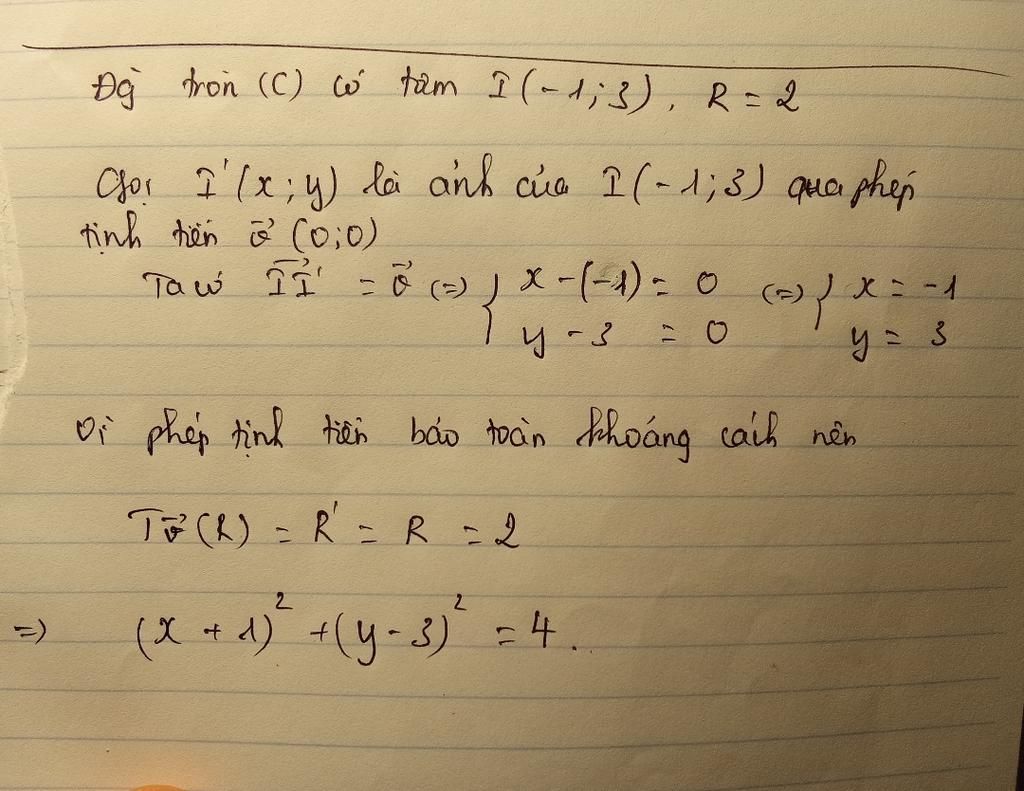 Đg tròn (C) có tâm I(-1;3), R = 2
Gọi I'(x;y) là ảnh của I(-1;3) qua phép
tịnh tiến v⃗ (0;0)
Ta có II'⃗ = v⃗ (=) { x-(-1) = 0 (=) { x = -1
y - 3 = 0 y = 3
Vì phép tịnh tiến bảo toàn khoảng cách nên
Tv⃗(R) = R' = R = 2
=) (x + 1)² + (y - 3)² = 4.